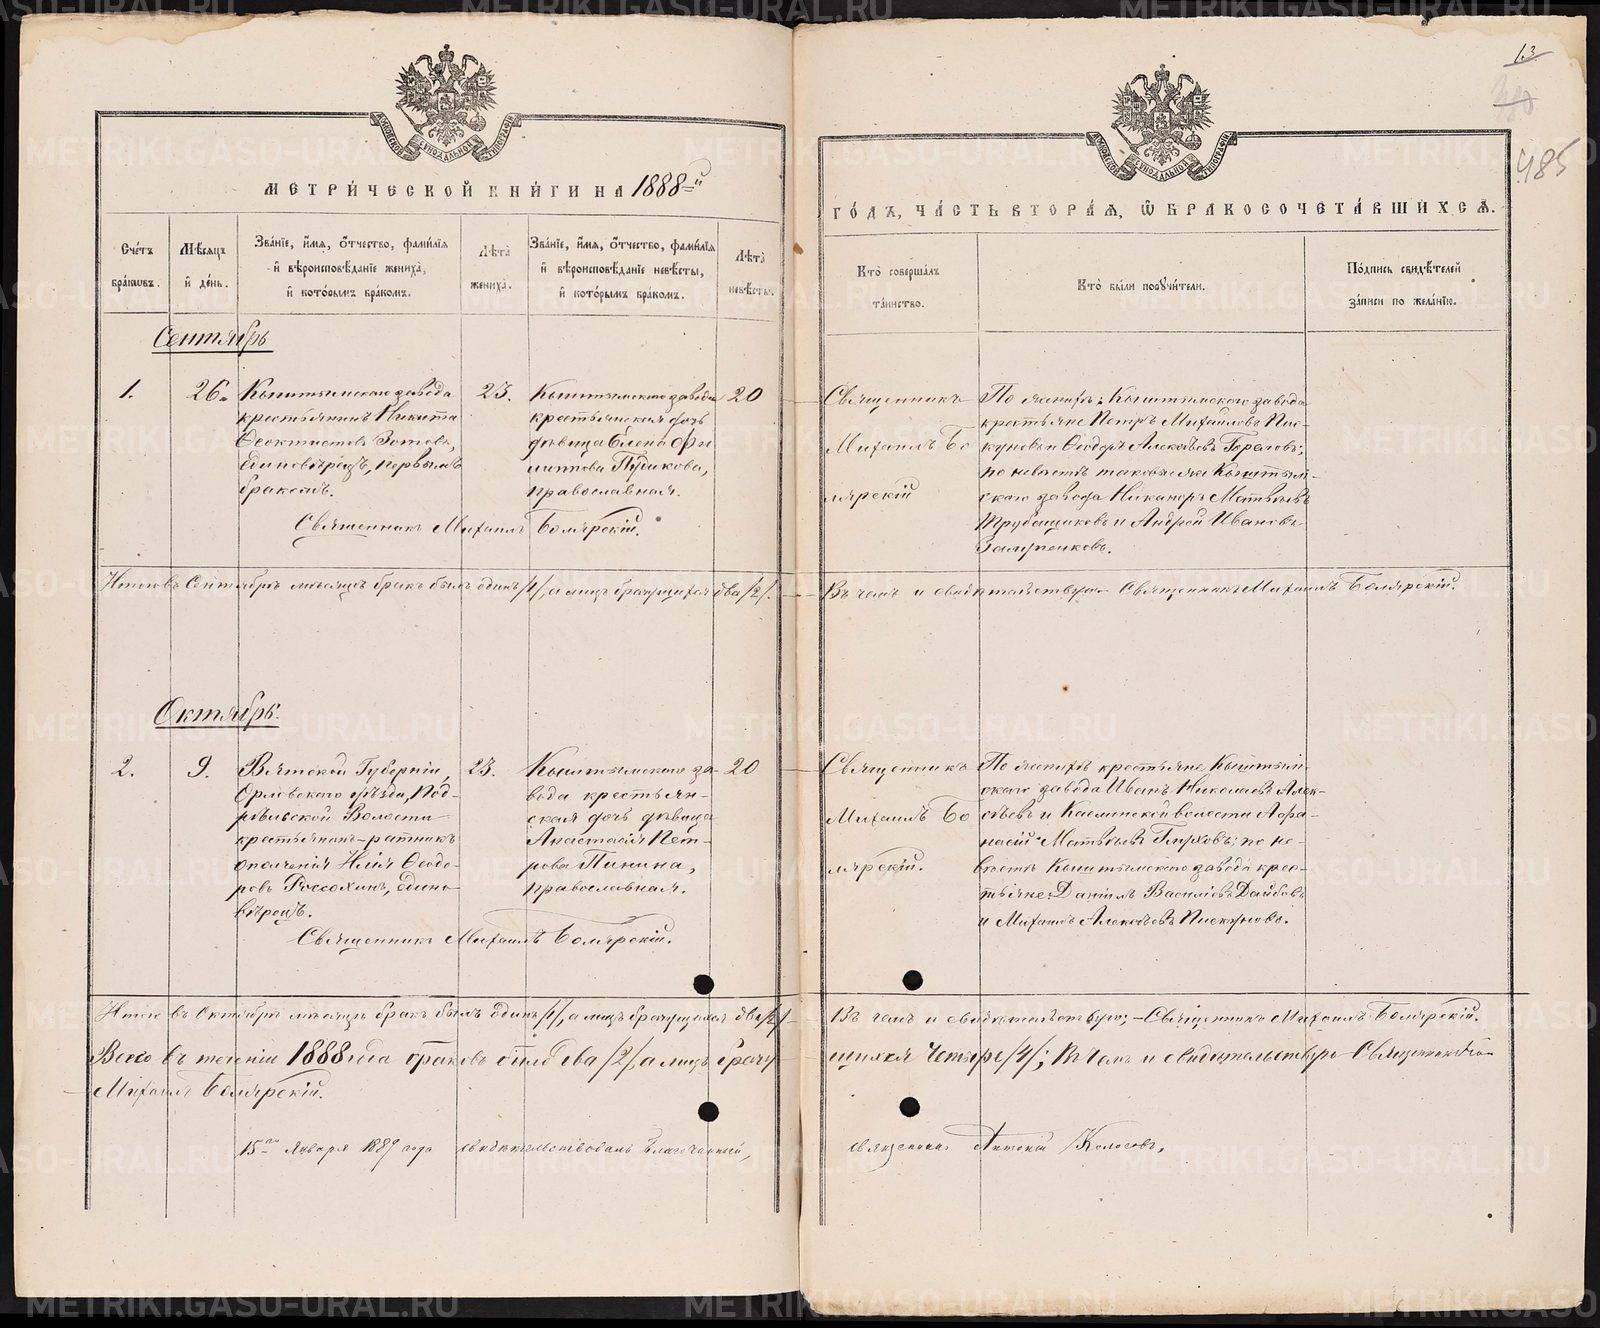 13
485
МЕТРИЧЕСКОЙ КНИГИ НА 1888-й
ГОДЪ, ЧАСТЬ ВТОРАЯ, Ѡ БРАКОСОЧЕТАВШИХСЯ.
Счетъ браковъ.
Мѣсяцъ и день.
Званіе, имя, отчество, фамилія и вѣроисповѣданіе жениха, и которымъ бракомъ.
Лѣта жениха.
Званіе, имя, отчество, фамилія и вѣроисповѣданіе невѣсты, и которымъ бракомъ.
Лѣта невѣсты.
Кто совершалъ таинство.
Кто были поручители.
Подпись свидѣтелей записи по желанію.
Сентябрь
1.
26.
Кыштымскаго завода
крестьянинъ Никита
Ѳеоктистовъ Зотовъ,
единовѣрецъ, первымъ
бракомъ.
23.
Кыштымскаго завода
крестьянская дочь
дѣвица Елена Фи
липпова Пушкова,
православная.
20
Священникъ
Михаилъ Бо
лярскій
По женихѣ: Кыштымскаго завода
крестьяне Петръ Михайловъ Пис-
куновъ и Ѳеодоръ Алексѣевъ
по невѣстѣ таковые же Кыштым-
скаго завода Никаноръ Матвѣевъ
Трубащиковъ и Андрей Ивановъ
Священникъ Михаилъ Болярскій.
Итого въ Сентябрѣ мѣсяцѣ бракъ былъ одинъ /1/, а лицъ брачущихся два /2/.
Въ чемъ и свидѣтельствую Священникъ Михаилъ Болярскій.
Октябрь.
2.
9.
Вятской Губерніи,
Орловскаго уѣзда, Под-
рѣльской Волости
крестьянинъ-ратникъ
ополченія Илія Ѳеодо-
ровъ Россохинъ, едино-
вѣрецъ.
23.
Кыштымскаго за-
вода крестьян-
ская дочь дѣвица
Анастасія Пет-
рова Пинина,
православная.
20
Священникъ
Михаилъ Бо
лярскій.
По женихѣ крестьяне Кыштым-
скаго завода Иванъ Николаевъ Алек-
сѣевъ и Каслинской волости Афа-
насій Матвѣевъ Глуховъ; по не-
вѣстѣ Кыштымскаго завода крес-
тьяне: Даніилъ Васильевъ Дайбовъ
и Михаилъ Алексѣевъ Пискуновъ.
Священникъ Михаилъ Болярскій.
Итого въ Октябрѣ мѣсяцѣ бракъ былъ одинъ /1/, а лицъ брачущихся два /2/
Въ чемъ и свидѣтельствую; - Священникъ Михаилъ Болярскій.
Всего въ теченіи 1888 года браковъ было два /2/, а лицъ брачу-
щихся четыре /4/; въ чемъ и свидѣтельствую Священникъ
Михаилъ Болярскій.
15-го Января 1889 года свидѣтельствовалъ Благочинный,
священникъ Антоній Колосовъ.
METRIKI.GASO-URAL.RU